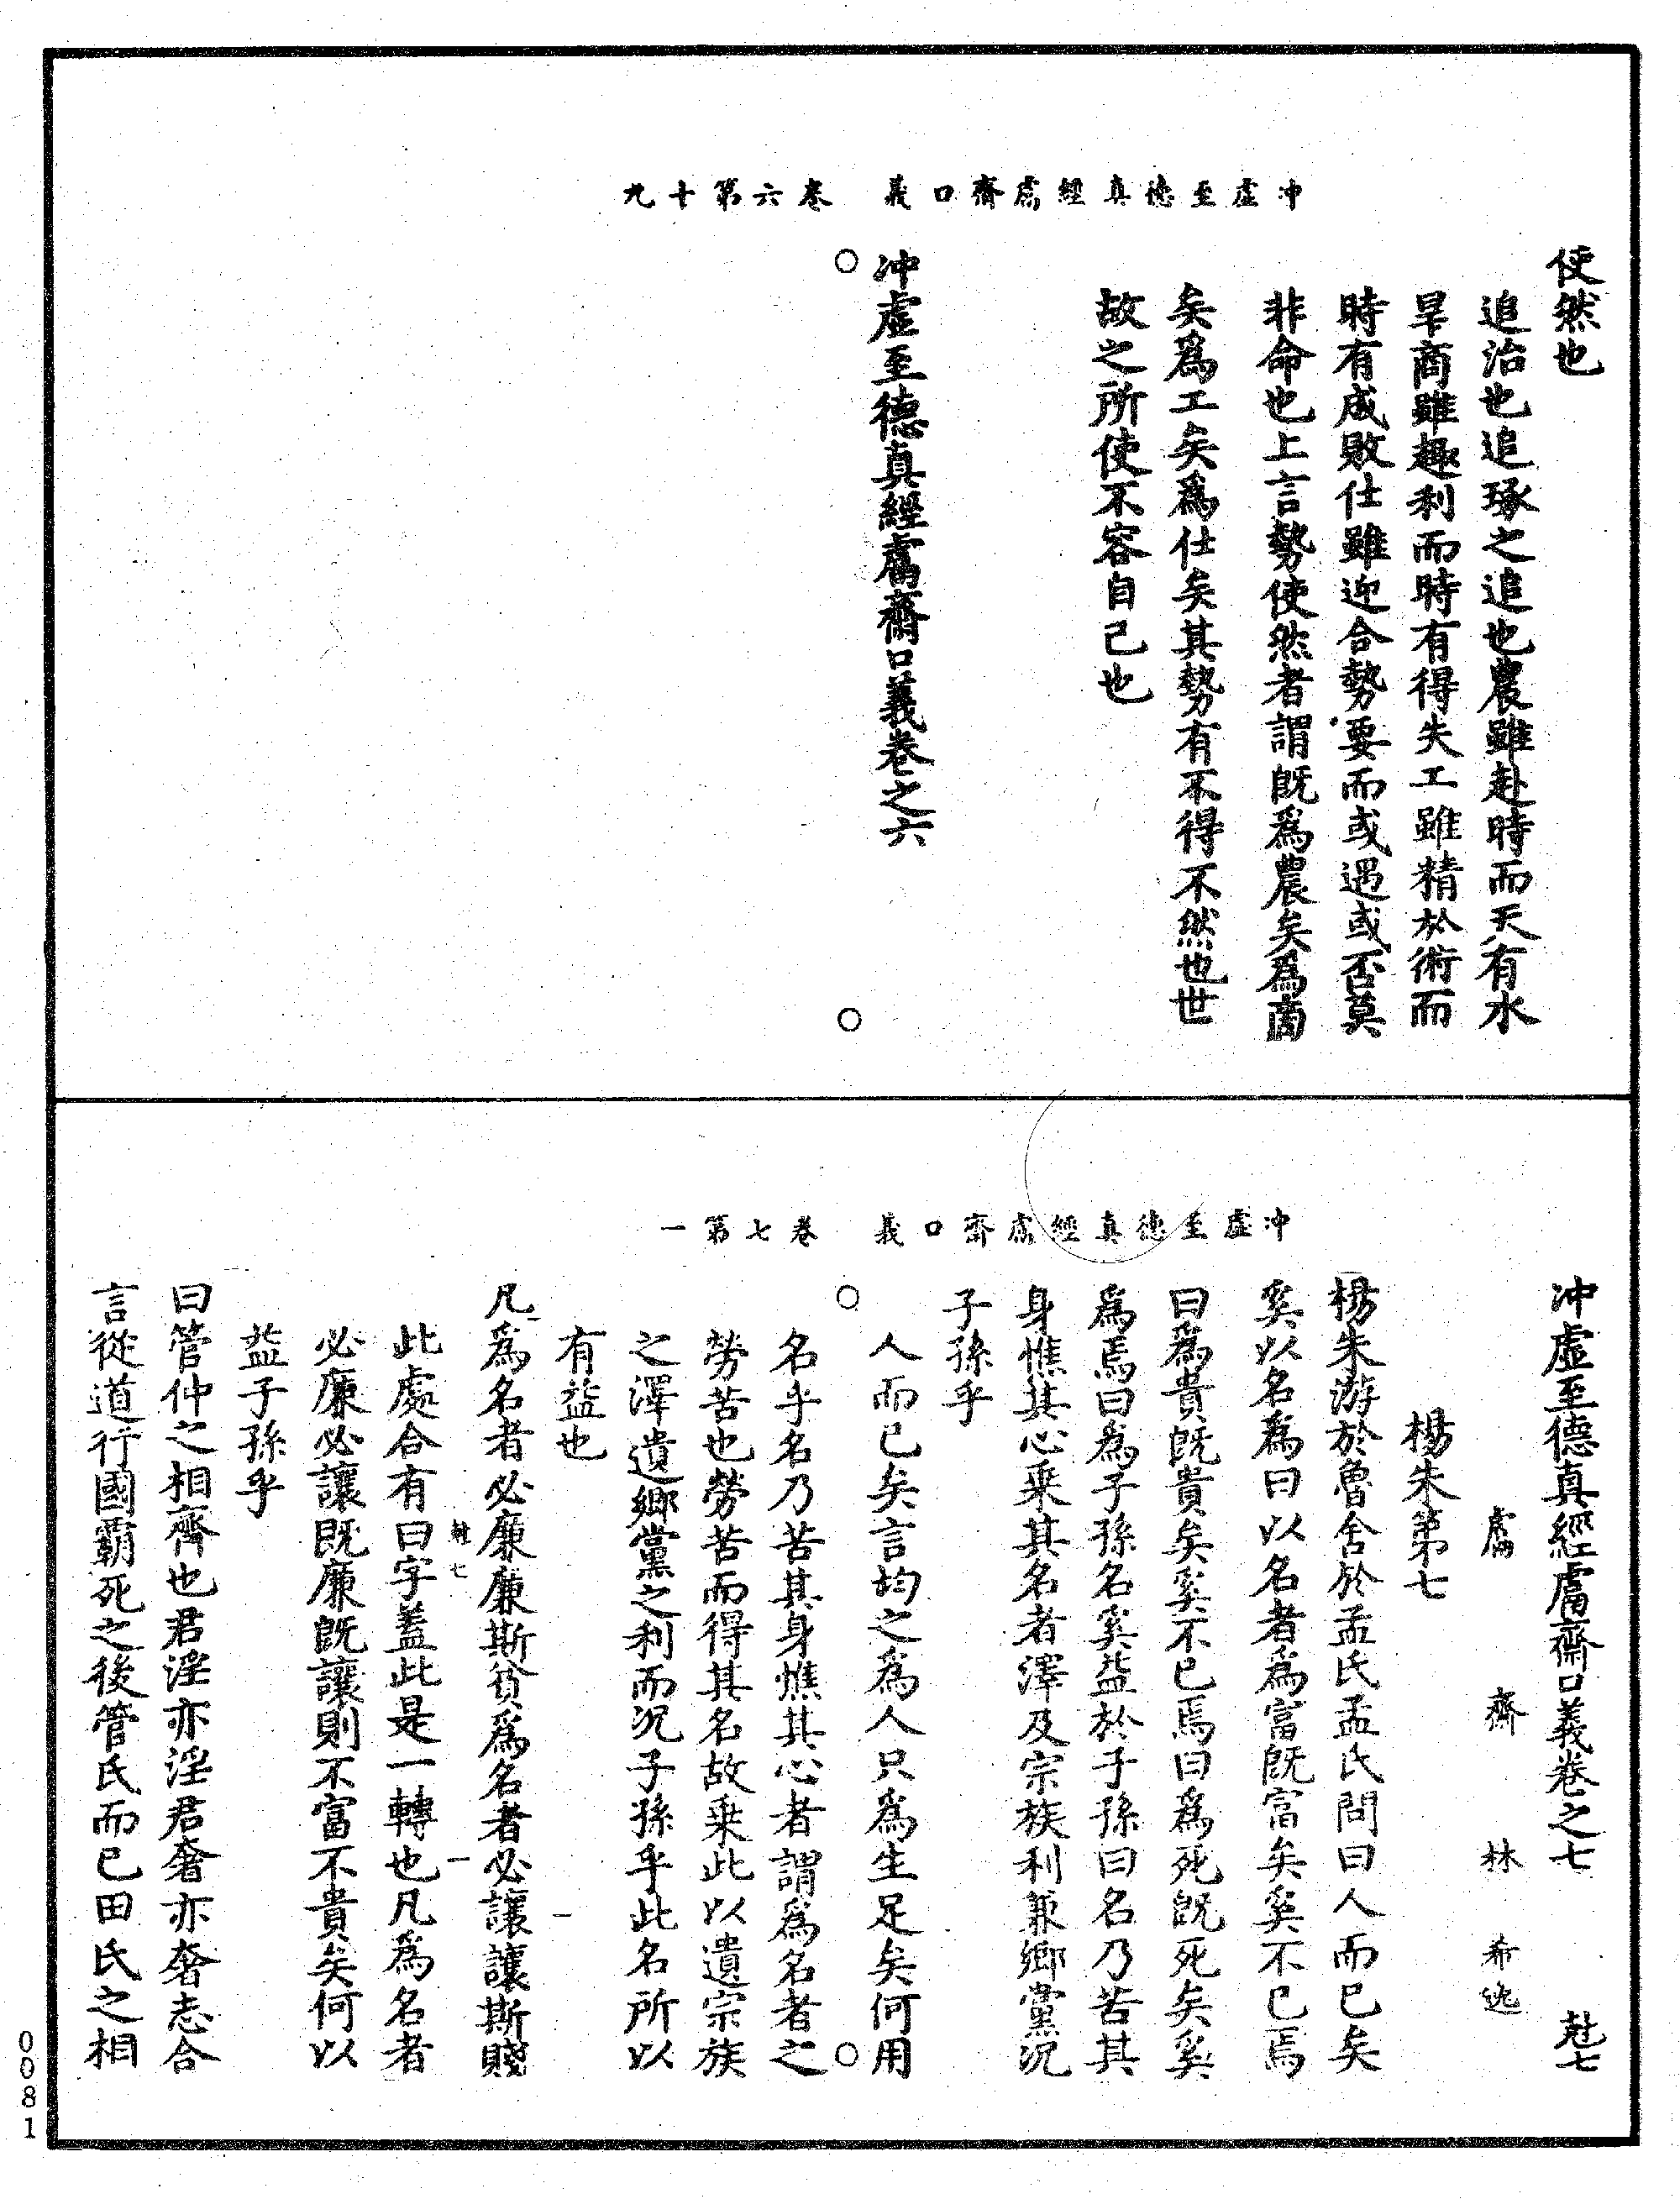 冲虛至德真經鬳齋口義　卷六第十九
使然也
追治也追琢之追也農雖赴時而天有水
旱商雖趣利而時有得失工雖精於術而
時有成敗仕雖迎合勢要而或遇或否莫
非命也上言勢使然者謂旣爲農矣爲商
矣爲工矣爲仕矣其勢有不得不然也世
故之所使不容自已也
冲虛至德真經鬳齋口義卷之六
冲虛至德真經鬳齋口義　卷七第一
冲虛至德真經鬳齋口義卷之七　尅七
鬳齋林希逸
楊朱第七
楊朱游於魯舍於孟氏孟氏問曰人而已矣
奚以名爲曰以名者爲富旣富矣奚不已焉
曰爲貴旣貴矣奚不已焉曰爲死旣死矣奚
爲焉曰爲子孫名奚益於子孫曰名乃苦其
身憔其心乘其名者澤及宗族利兼鄉黨況
子孫乎
人而已矣言均之爲人只爲生足矣何用
名乎名乃苦其身憔其心者謂爲名者之
勞苦也勞苦而得其名故乘此以遺宗族
之澤遺鄉黨之利而況子孫乎此名所以
有益也
凡爲名者必廉廉斯貧爲名者必讓讓斯賤
此處合有曰字蓋此是一轉也凡爲名者
必廉必讓旣廉旣讓則不富不貴矣何以
益子孫乎
曰管仲之相齊也君淫亦淫君奢亦奢志合
言從道行國霸死之後管氏而已田氏之相
0081